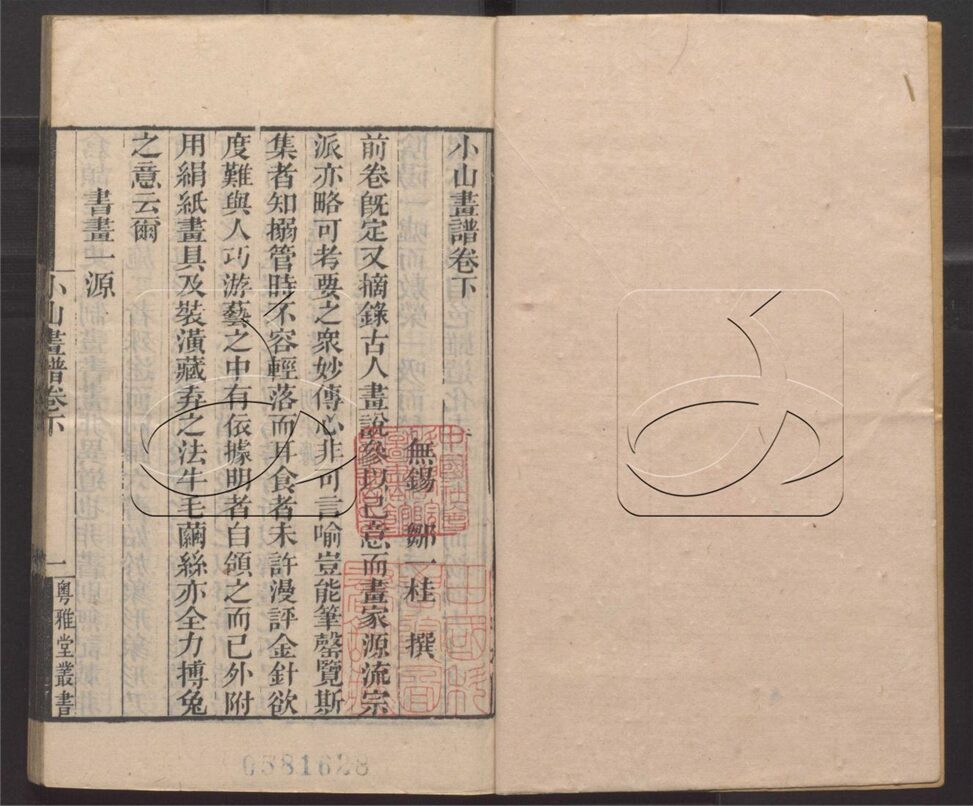 小山畫譜卷下
無錫 鄒一桂 撰
前卷旣定又摘錄古人畫說參以己意而畫家源流宗
派亦略可考要之衆妙傳心非可言喻豈能筆罄覽斯
集者知搦管時不容輕落而耳食者未許漫評金針欲
度難與人巧游藝之中有依據明者自領之而已外附
用絹紙畫具及裝潢藏弆之法牛毛繭絲亦全力搏兔
之意云爾
書畫一源
小山畫譜卷下
一
粵雅堂叢書
0581628